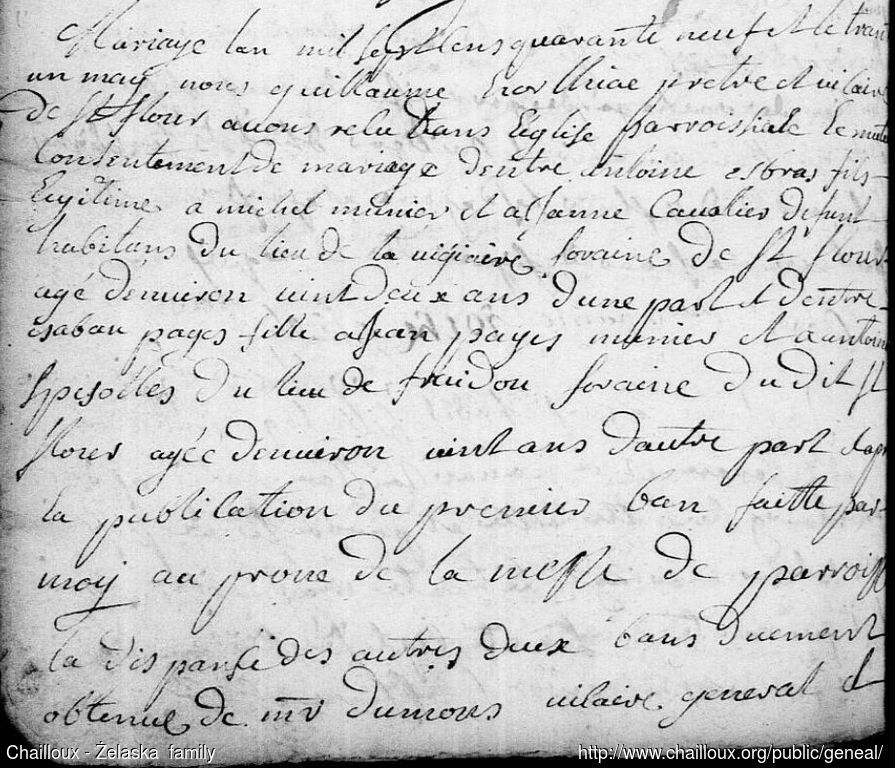 Mariage lan mil sept cens quarante neuf et le tran
un may nous guillaume prêtre et vicaire
de St flour avons relu dans Eglise parroissiale le mutu
Consentement de mariage dentre antoine esbras fils
legitime a michel munier et a Janne Cavalier defunt
habitans du lieu de la vigiaire foraine de St flour
agé denuiron vint deux ans dune part et dentre
isabau pages fille a Jean pages munier et a antoine
spesolles du lieu de fraidou foraine dudit St
flour agée denuiron vint ans dautre part et apr
la publication du premier ban faitte par
moy au prone de la messe de parroiss
la dispanse des autres deux bans duement
obtenue de mr dumons vicaire general et
Chailloux - Żelaska family
http://www.chailloux.org/public/geneal/